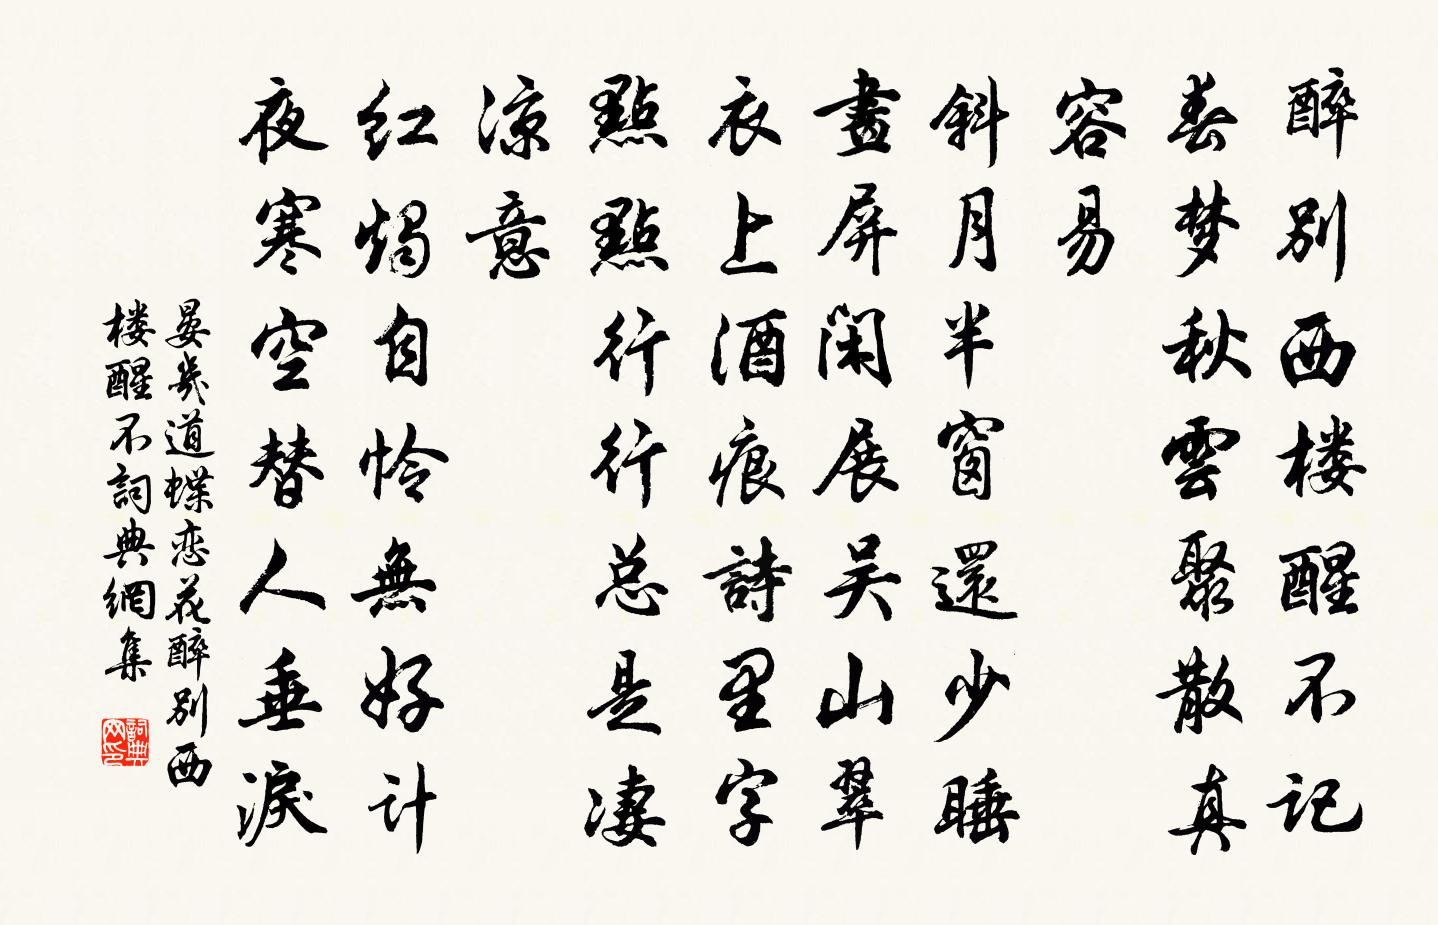 醉别西楼醒不记
春梦秋雲聚散真
容易
斜月半窗還少睡
畫屏闲展吴山翠
衣上酒痕詩里字
點點行行总是凄
涼意
红燭自怜無好计
夜寒空替人垂淚
晏幾道蝶恋花醉别西
楼醒不詞典網集
詞典网印